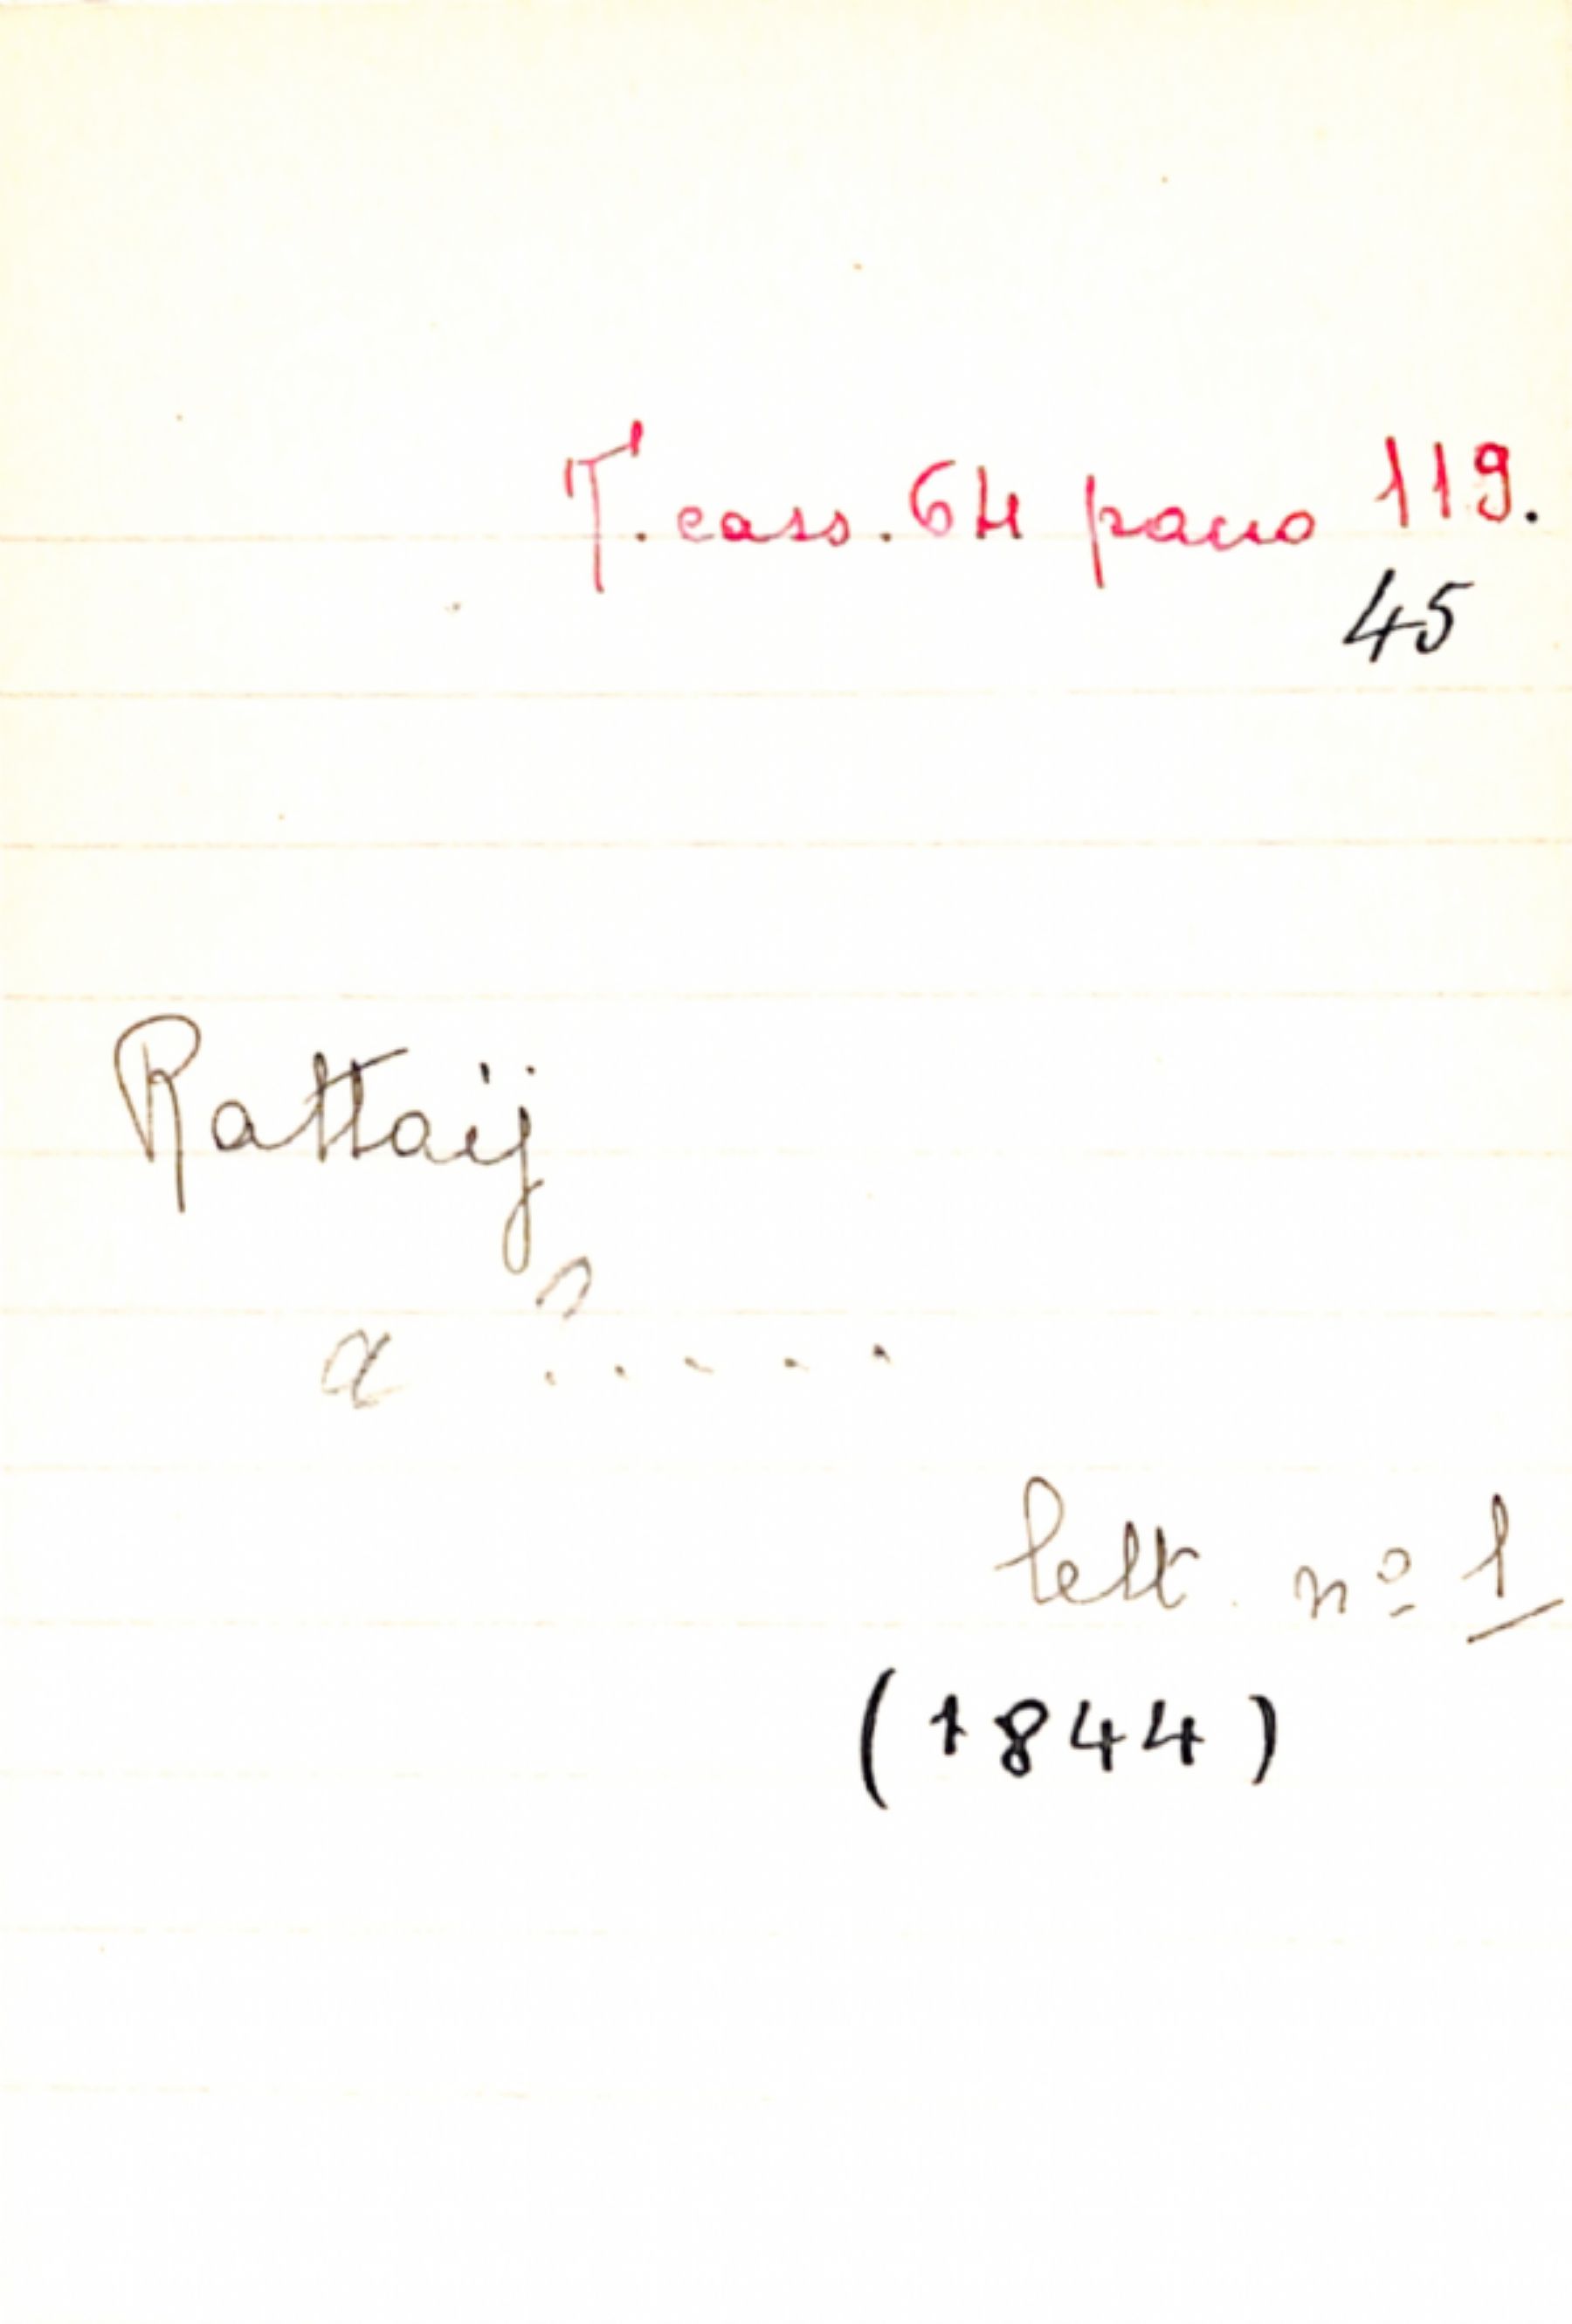 T. cass. 64 paco 119.
45
Rattaij
a ? . . . . .
lett. nº 1
(1844)